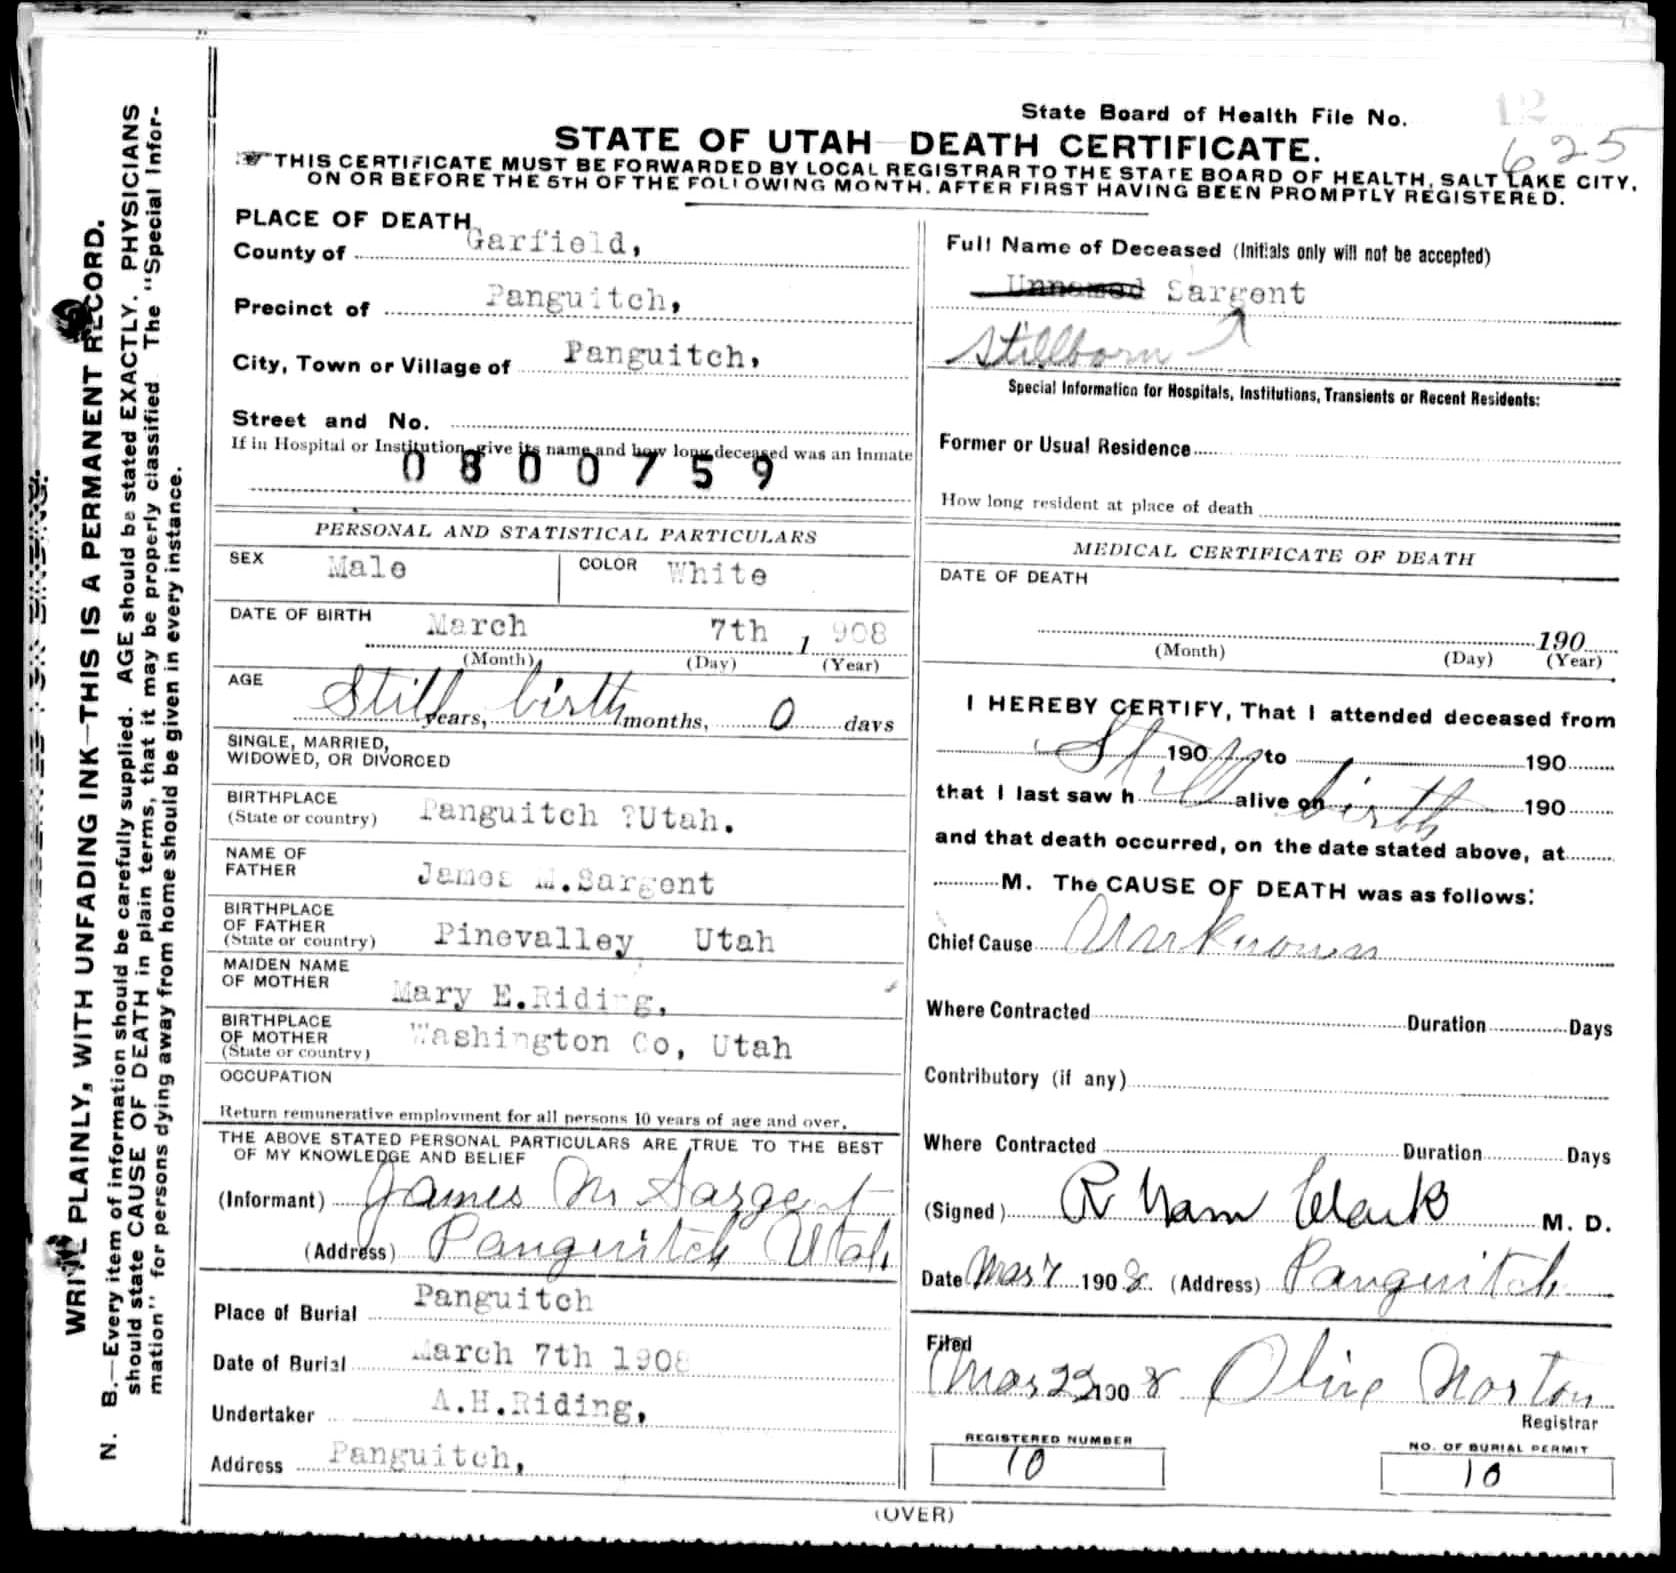 State Board of Health File No. 12
625
STATE OF UTAH DEATH CERTIFICATE.
THIS CERTIFICATE MUST BE FORWARDED BY LOCAL REGISTRAR TO THE STATE BOARD OF HEALTH, SALT LAKE CITY,
ON OR BEFORE THE 5TH OF THE FOLLOWING MONTH. AFTER FIRST HAVING BEEN PROMPTLY REGISTERED.
WRITE PLAINLY, WITH UNFADING INK—THIS IS A PERMANENT RECORD.
N. B.—Every item of information should be carefully supplied. AGE should be stated EXACTLY. PHYSICIANS
should state CAUSE OF DEATH in plain terms, that it may be properly classified The "Special Infor-
mation" for persons dying away from home should be given in every instance.
PLACE OF DEATH
County of Garfield,
Precinct of Panguitch,
City, Town or Village of Panguitch,
Street and No.
If in Hospital or Institution, give its name and how long deceased was an Inmate
0800759
PERSONAL AND STATISTICAL PARTICULARS
SEX Male COLOR White
DATE OF BIRTH March 7th 1, 908
(Month) (Day) (Year)
AGE Still years, birth months, 0 days
SINGLE, MARRIED,
WIDOWED, OR DIVORCED
BIRTHPLACE
(State or country) Panguitch ?Utah.
NAME OF
FATHER James M.Sargent
BIRTHPLACE
OF FATHER
(State or country) Pinevalley Utah
MAIDEN NAME
OF MOTHER Mary E.Riding,
BIRTHPLACE
OF MOTHER
(State or country) Washington Co, Utah
OCCUPATION
Return remunerative employment for all persons 10 years of age and over.
THE ABOVE STATED PERSONAL PARTICULARS ARE TRUE TO THE BEST
OF MY KNOWLEDGE AND BELIEF
(Informant) James M Sargent
(Address) Panguitch Utah
Place of Burial Panguitch
Date of Burial March 7th 1908
Undertaker A.H.Riding,
Address Panguitch,
Full Name of Deceased (Initials only will not be accepted)
Unnamed Sargent
Stillborn
Special Information for Hospitals, Institutions, Transients or Recent Residents:
Former or Usual Residence
How long resident at place of death
MEDICAL CERTIFICATE OF DEATH
DATE OF DEATH
190
(Month) (Day) (Year)
I HEREBY CERTIFY, That I attended deceased from
190 to 190
that I last saw h Still alive on birth 190
and that death occurred, on the date stated above, at
M. The CAUSE OF DEATH was as follows:
Chief Cause Unknown
Where Contracted Duration Days
Contributory (if any)
Where Contracted Duration Days
(Signed) R Clark M. D.
Date Mar 7 1908. (Address) Panguitch
Filed
Mar 22 1908 Olive Norton
Registrar
REGISTERED NUMBER
10
NO. OF BURIAL PERMIT
10
(OVER)